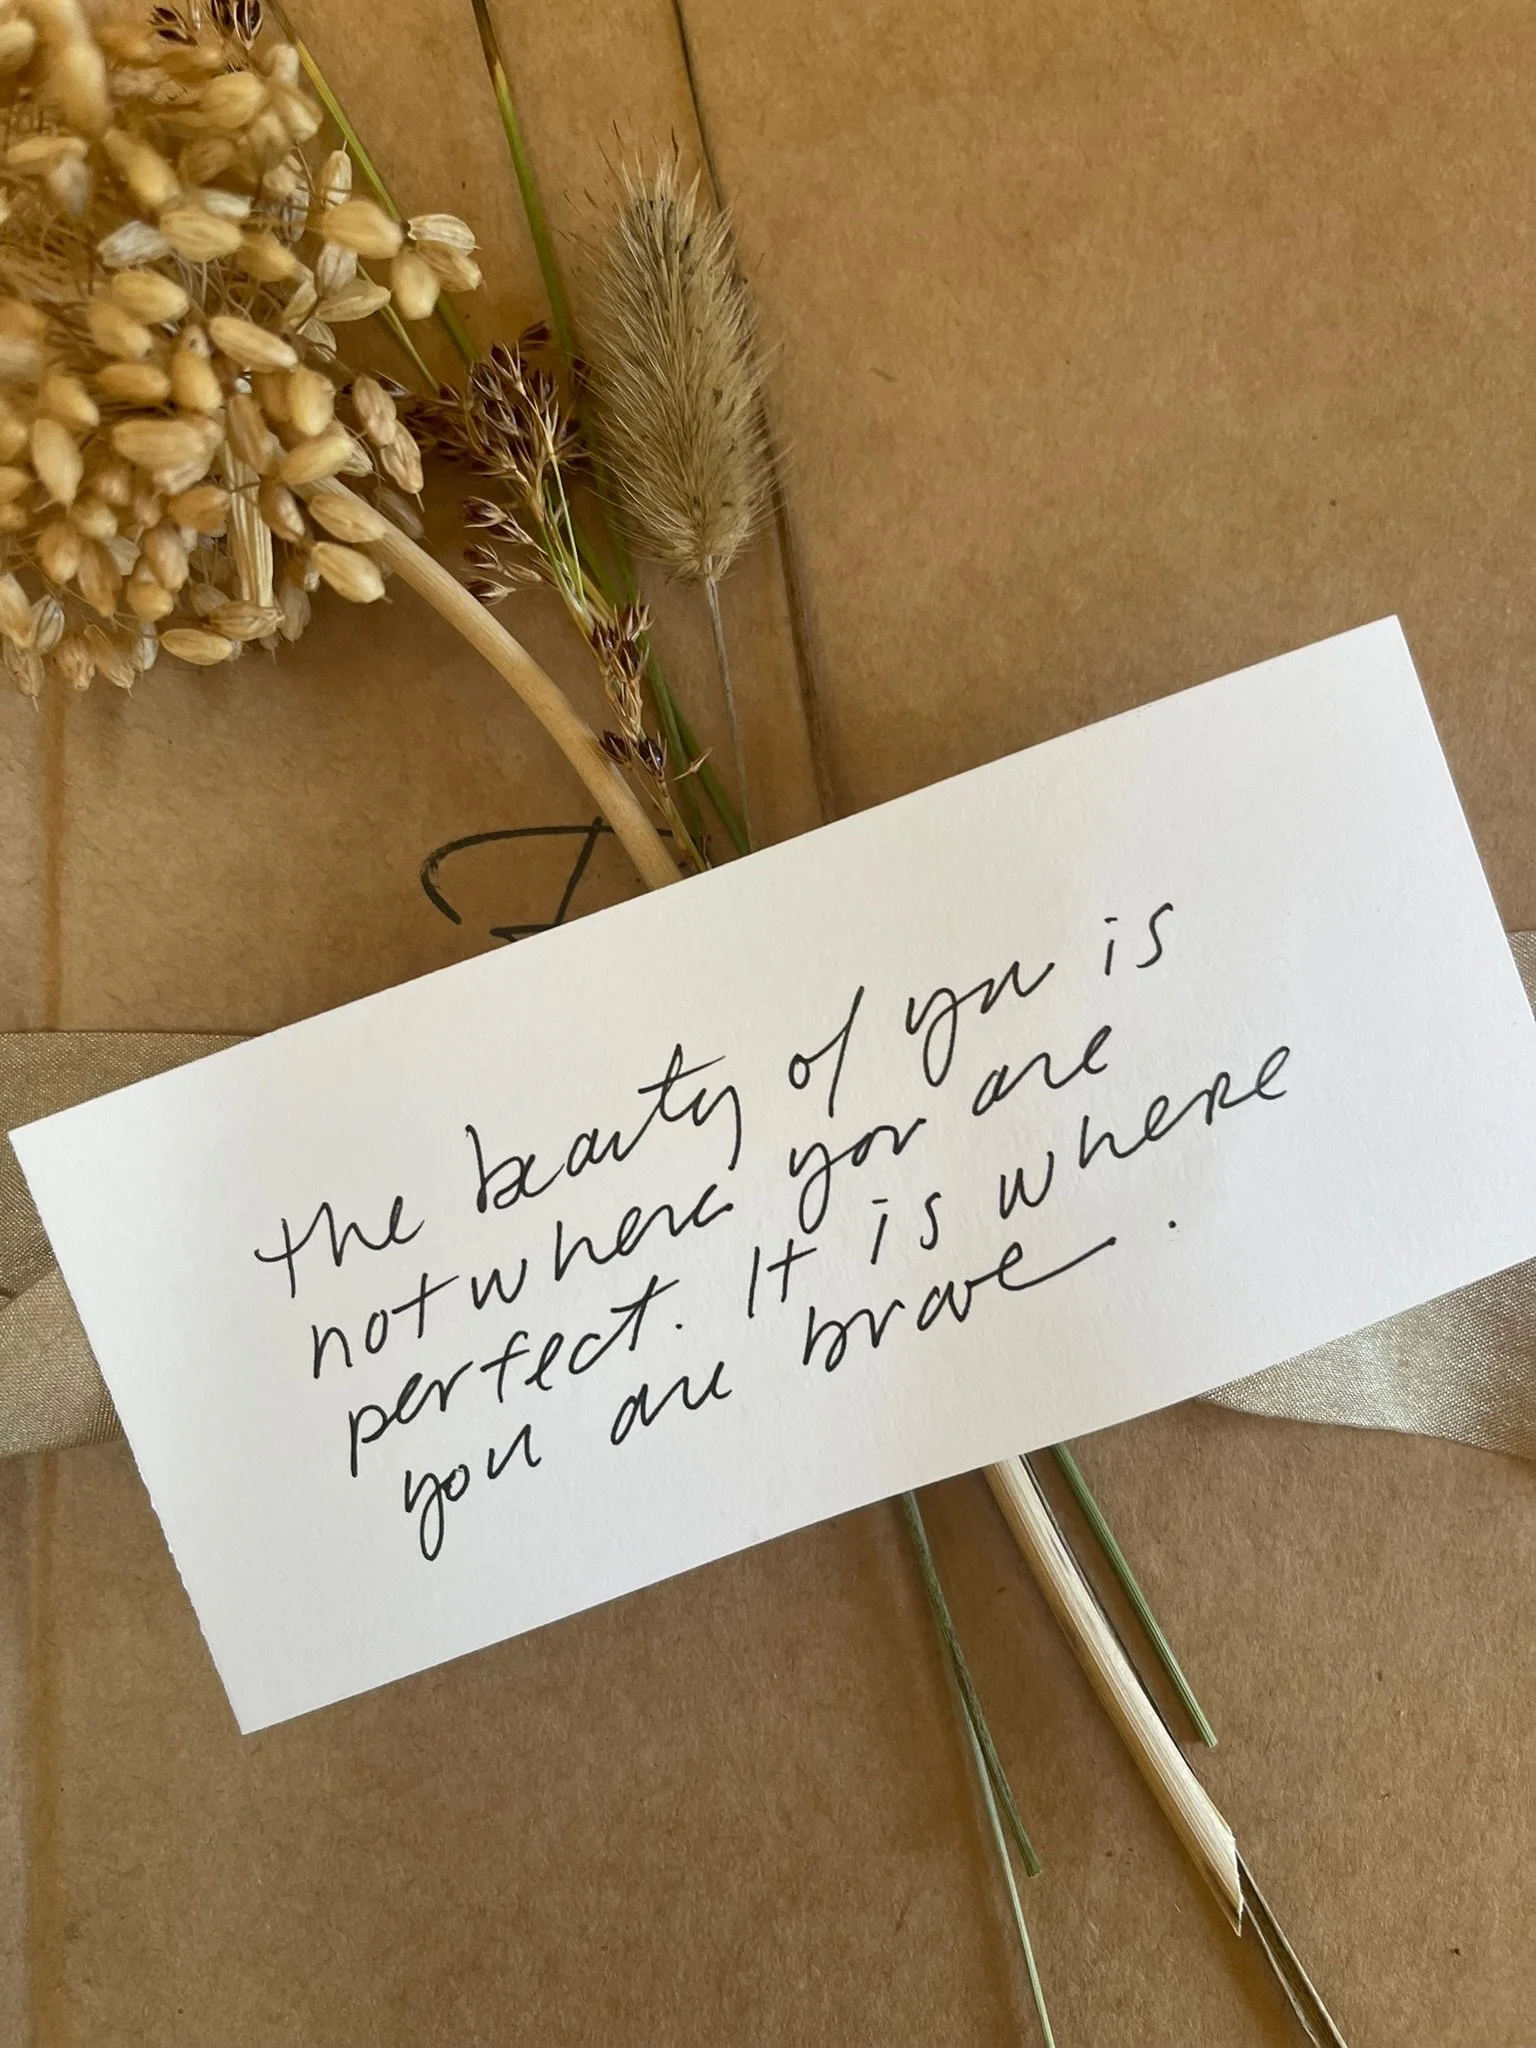 the beauty of you is
not where you are
perfect. It is where
you are brave.